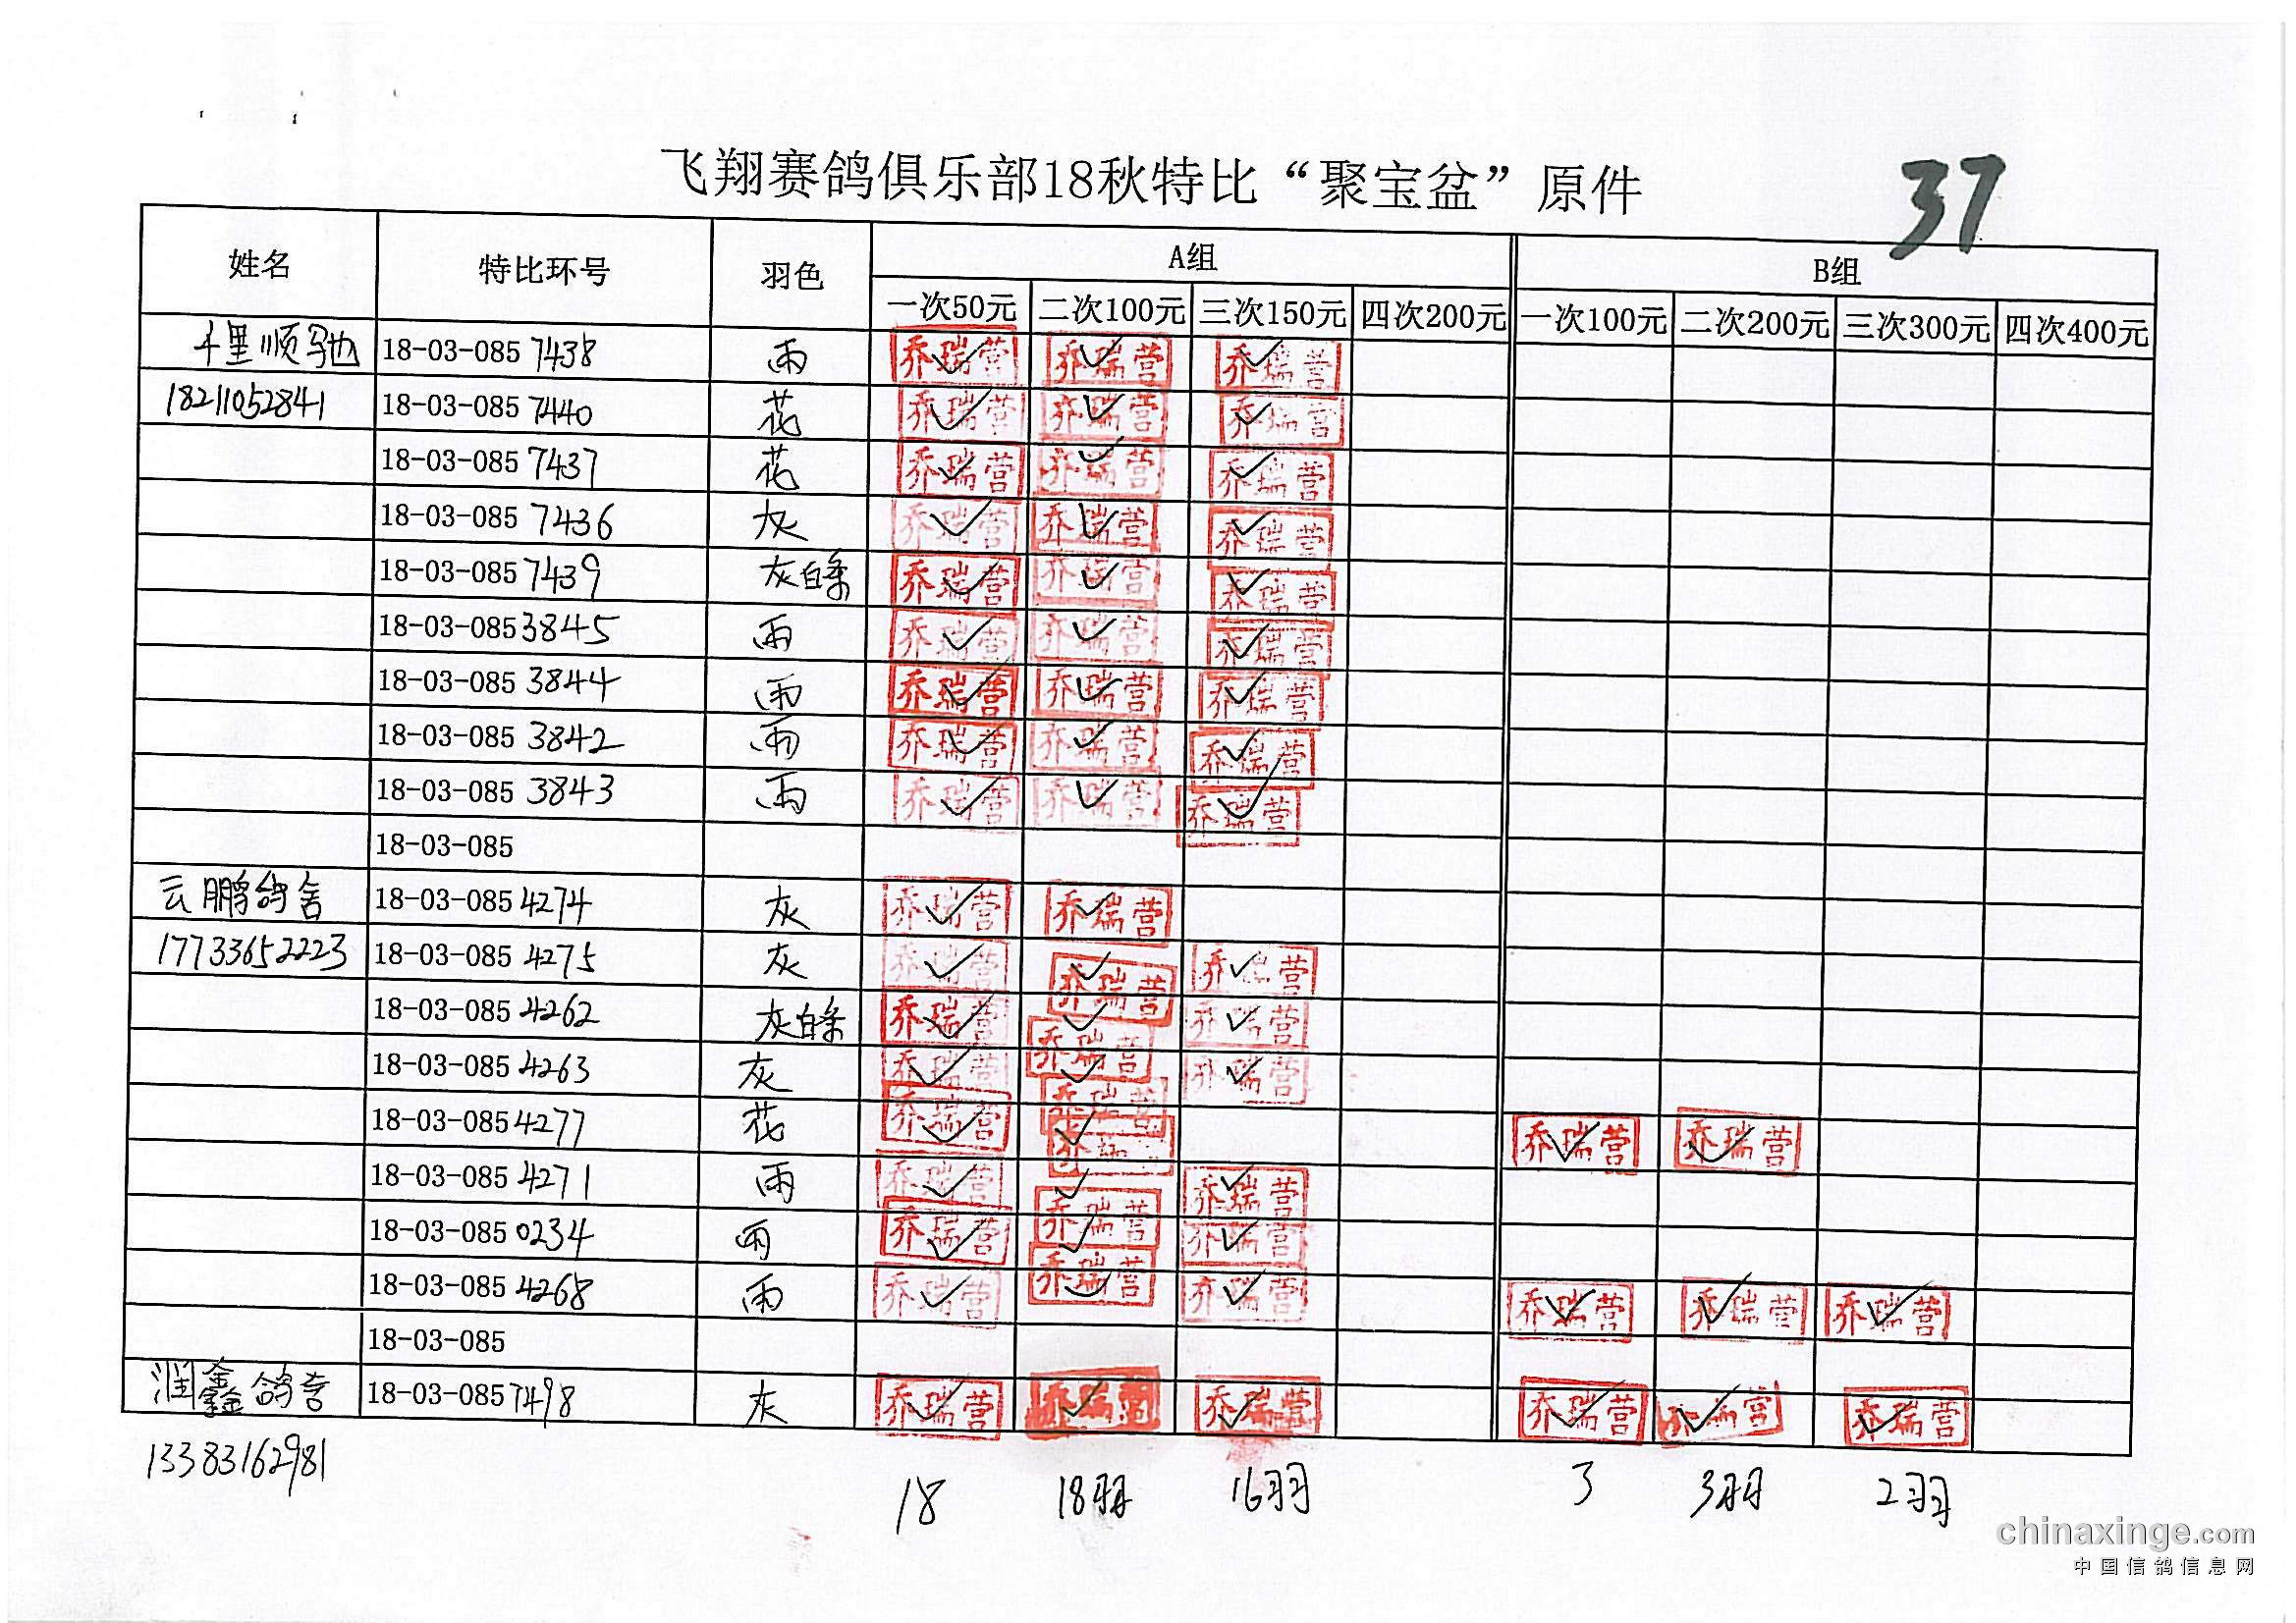 飞翔赛鸽俱乐部18秋特比“聚宝盆”原件
37
姓名 特比环号 羽色 A组 B组
一次50元 二次100元 三次150元 四次200元 一次100元 二次200元 三次300元 四次400元
千里顺驰 18-03-085 7438 雨 乔瑞营 乔瑞营 乔瑞营
18211052841 18-03-085 7440 花 乔瑞营 乔瑞营 乔瑞营
18-03-085 7437 花 乔瑞营 乔瑞营 乔瑞营
18-03-085 7436 灰 乔瑞营 乔瑞营 乔瑞营
18-03-085 7439 灰白条 乔瑞营 乔瑞营 乔瑞营
18-03-085 3845 雨 乔瑞营 乔瑞营 乔瑞营
18-03-085 3844 雨 乔瑞营 乔瑞营 乔瑞营
18-03-085 3842 雨 乔瑞营 乔瑞营 乔瑞营
18-03-085 3843 雨 乔瑞营 乔瑞营 乔瑞营
18-03-085
云鹏鸽舍 18-03-085 4274 灰 乔瑞营 乔瑞营
17733652223 18-03-085 4275 灰 乔瑞营 乔瑞营 乔瑞营
18-03-085 4262 灰白条 乔瑞营 乔瑞营 乔瑞营
18-03-085 4263 灰 乔瑞营 乔瑞营 乔瑞营
18-03-085 4277 花 乔瑞营 乔瑞营 乔瑞营 乔瑞营
18-03-085 4271 雨 乔瑞营 乔瑞营 乔瑞营
18-03-085 0234 雨 乔瑞营 乔瑞营 乔瑞营
18-03-085 4268 雨 乔瑞营 乔瑞营 乔瑞营 乔瑞营 乔瑞营
18-03-085
润鑫鸽舍 18-03-085 7498 灰 乔瑞营 乔瑞营 乔瑞营 乔瑞营 乔瑞营 乔瑞营
13383162981
18 18羽 16羽 3 3羽 2羽
chinaxinge.com
中国信鸽信息网